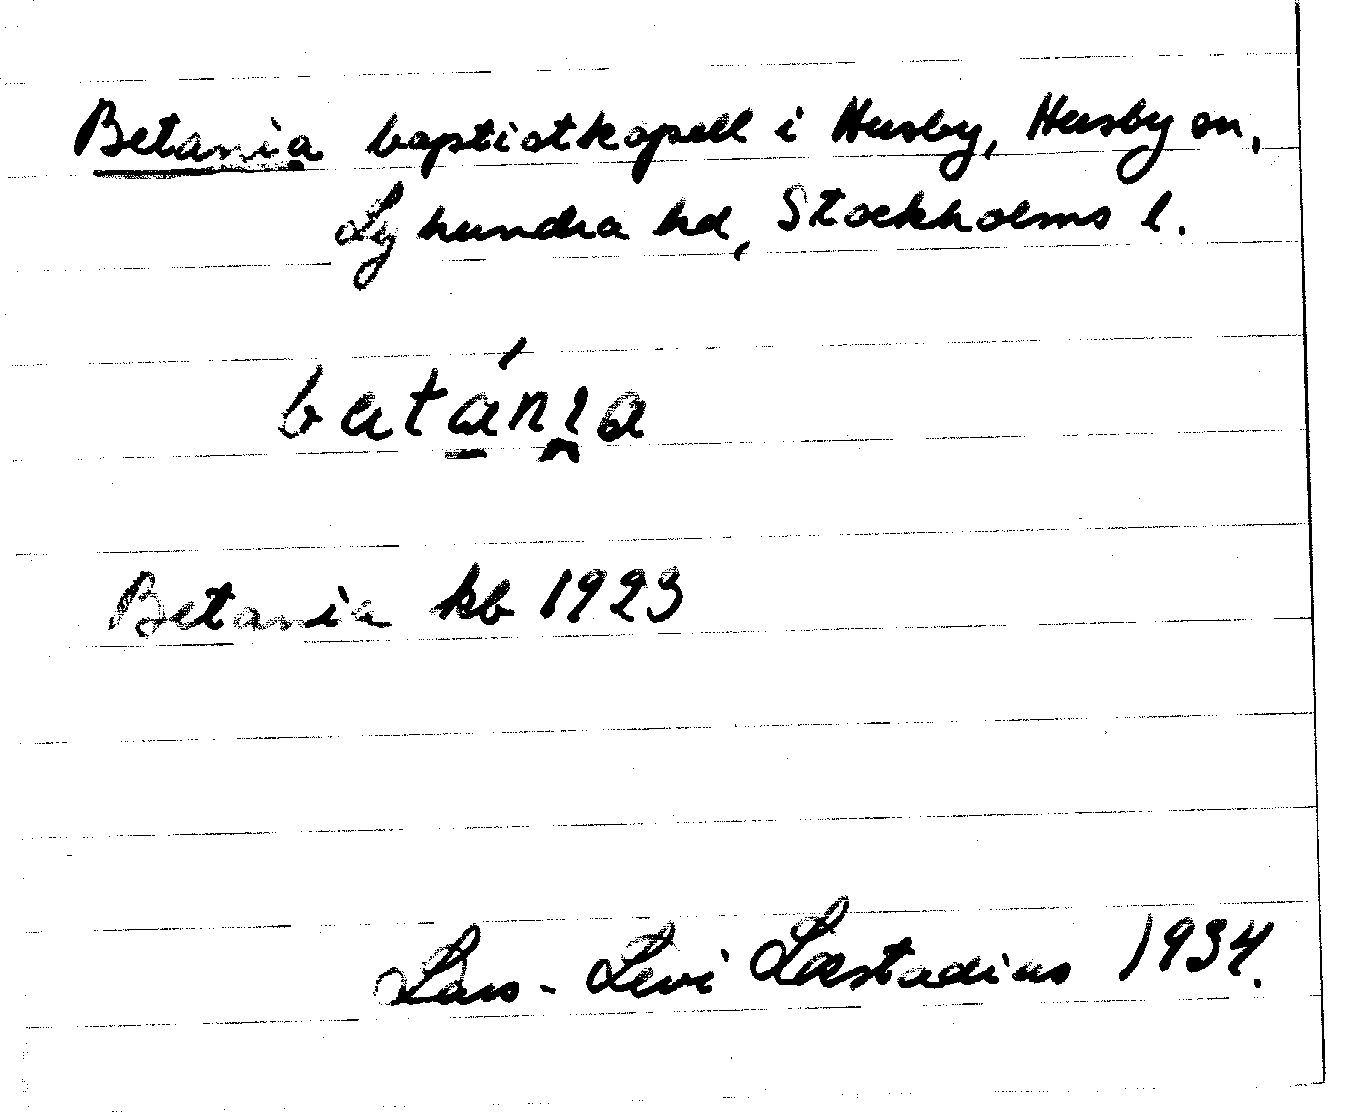 Betania baptistkapell i Husby, Husby sn,
Lyhundra hd, Stockholms l.
betánı̯a
Betania kb 1923
Lars-Levi Læstadius 1934.